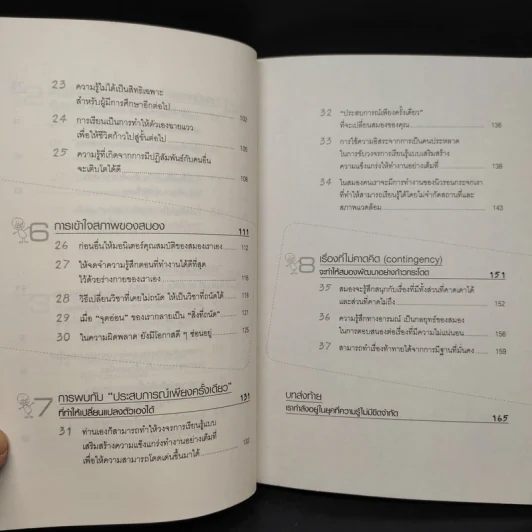 23 ความรู้ไม่ได้เป็นสิทธิเฉพาะ
สำหรับผู้มีการศึกษาอีกต่อไป 102
24 การเรียนเป็นการทำให้ตัวเองฉายแวว
เพื่อให้ชีวิตก้าวไปสู่ขั้นต่อไป 105
25 ความรู้ที่เกิดจากการมีปฏิสัมพันธ์กับคนอื่น
จะเติบโตได้ดี 108
6 การเข้าใจสภาพของสมอง 111
26 ก่อนอื่นให้มอนิเตอร์คุณสมบัติของสมองเราเอง 112
27 ให้จดจำความรู้สึกตอนที่ทำงานได้ดีที่สุด
ไว้ด้วยร่างกายของเราเอง
28 วิธีเปลี่ยนวิชาที่เคยไม่ถนัด ให้เป็นวิชาที่ถนัดได้
29 เมื่อ "จุดอ่อน" ของเรากลายเป็น "สิ่งที่ถนัด" 121
30 ในความผิดพลาด ยังมีโอกาสดี ๆ ซ่อนอยู่ 125
7 การพบกับ "ประสบการณ์เพียงครั้งเดียว"
ที่ทำให้เปลี่ยนแปลงตัวเองได้ 131
31 ท่านเองก็สามารถทำให้วงจรการเรียนรู้แบบ
เสริมสร้างความแข็งแกร่งทำงานอย่างเต็มที่
เพื่อให้ความสามารถโดดเด่นขึ้นมาได้
32 "ประสบการณ์เพียงครั้งเดียว"
ที่จะเปลี่ยนสมองของคุณ 136
33 การใช้ความอิสระจากการเป็นคนประหลาด
ในการขับวงจรการเรียนรู้แบบเสริมสร้าง
ความแข็งแกร่งให้ทำงานอย่างเต็มที่ 138
34 ในสมองคนเราจะมีการทำงานของนิวรอนกระจกเงา
ที่ทำให้สามารถเรียนรู้ได้โดยไม่จำกัดสถานที่และ
สภาพแวดล้อม 143
8 เรื่องที่ไม่คาดคิด (contingency)
จะทำให้สมองพัฒนาอย่างก้าวกระโดด 151
35 สมองจะรู้สึกสนุกกับเรื่องที่มีทั้งส่วนที่คาดเดาได้
และส่วนที่คาดไม่ถึง 152
36 ความรู้สึกทางอารมณ์ เป็นกลยุทธ์ของสมอง
ในการตอบสนองต่อเรื่องที่มีความไม่แน่นอน 156
37 สามารถทำเรื่องท้าทายได้จากการมีฐานที่มั่นคง 159
บทส่งท้าย
เรากำลังอยู่ในยุคที่ความรู้ไม่มีขีดจำกัด 165